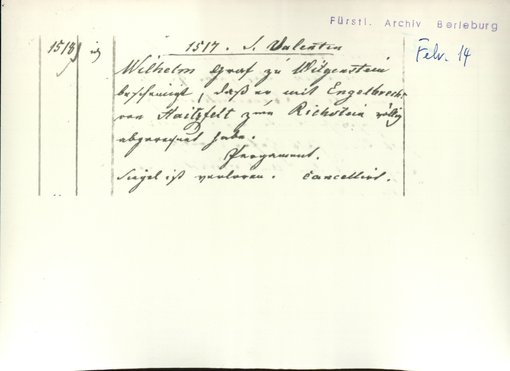 Fürstl. Archiv Berleburg
1518
1517. S. Valentin
Febr. 14
Wilhelm Graf zu Witgenstein
bescheinigt, daß er mit Engelbrecht
von Haitzfelt zum Richstein völlig
abgerechnet habe.
Pergament.
Siegel ist verloren. Cancellirt.